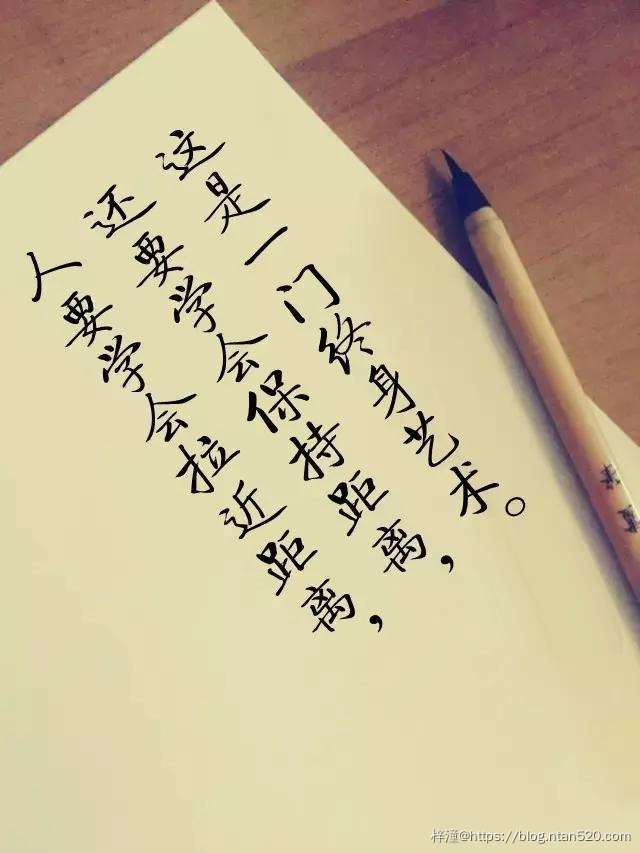 人要学会拉近距离，
还要学会保持距离，
这是一门终身艺术。
梓潼@https://blog.ntan520.com